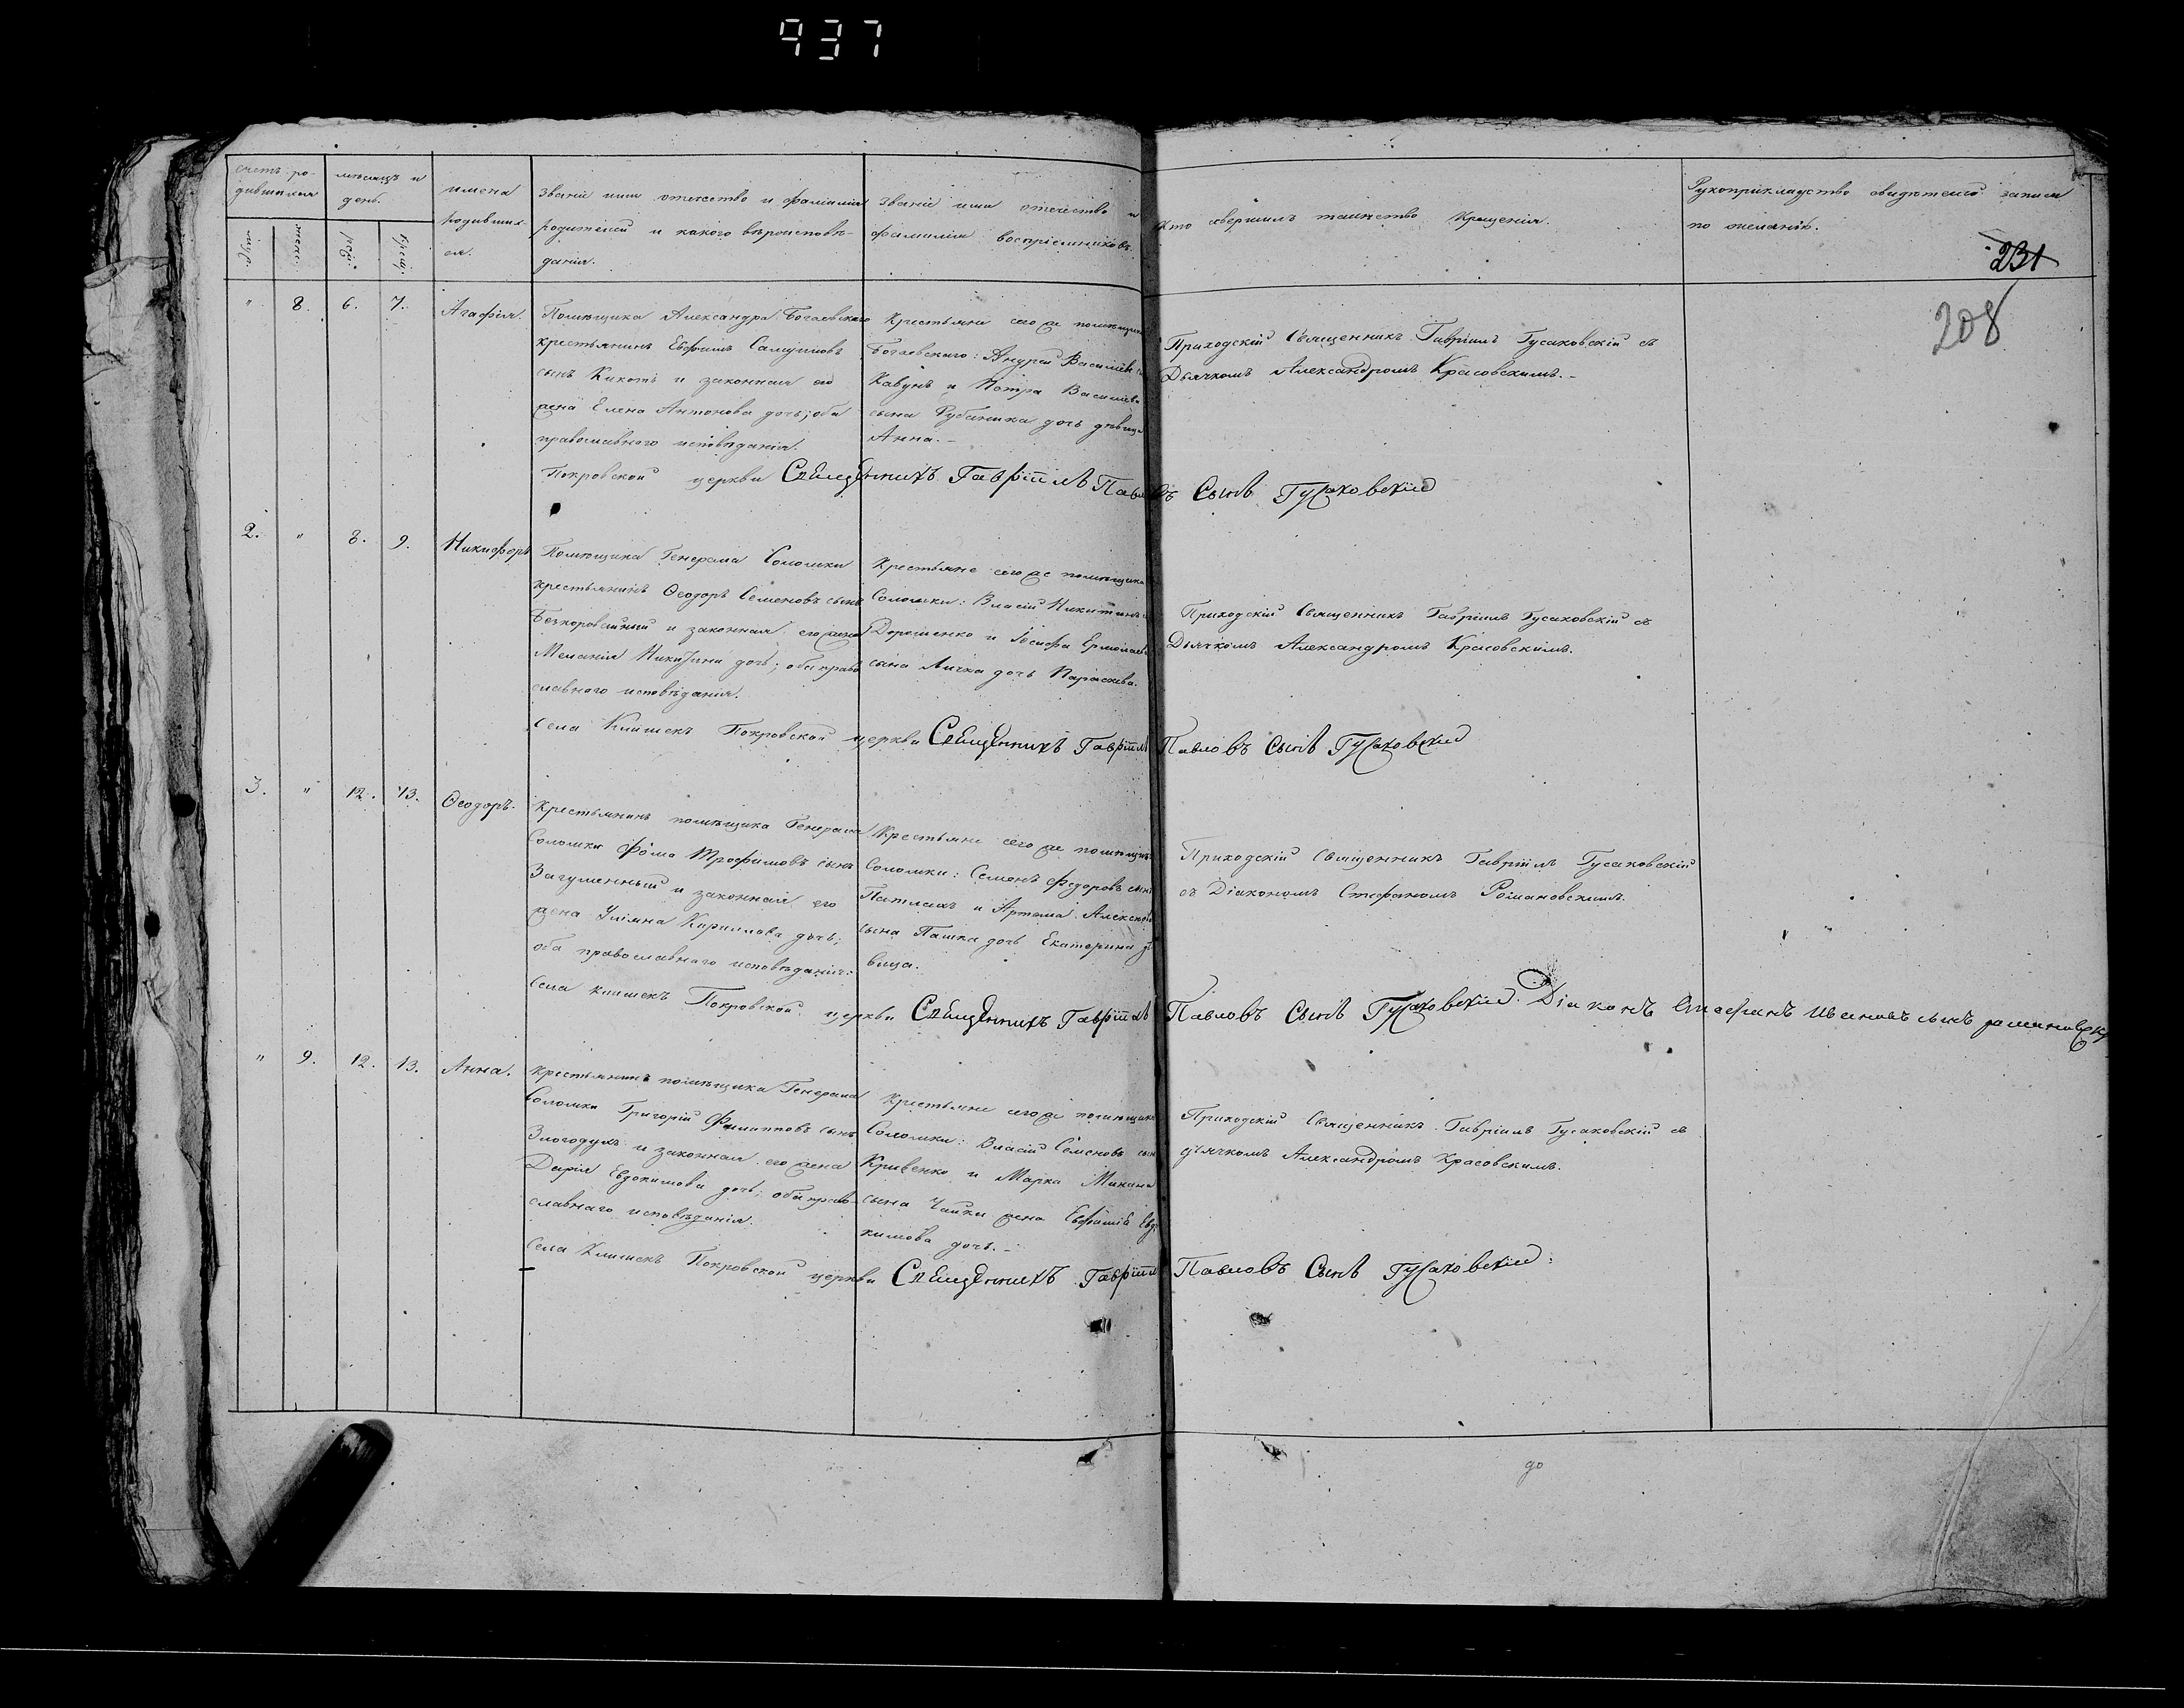 937
счетъ ро-
дившихся
мѣсяцъ и
день.
имена
родивших-
ся.
званіе имя отечество и фамилія
родителей и какого вѣроисповѣ-
данія.
званіе имя отечество и
фамилія воспріемниковъ.
кто совершилъ таинство крещенія.
Рукоприкладство свидѣтелей записи
по желанію.
муж:
жен:
рожд:
крещ:
231
208
" 8. 6. 7. Агафія.
Помѣщика Александра Богаевскаго
крестьянинъ Евфимъ Самуиловъ
сынъ Кикоть и законная его
жена Елена Антонова дочь; оба
православнаго исповѣданія.
Крестьяне сего же помѣщика
Богаевскаго: Андрей Василіевъ
Кавунъ и Петра Василіева
сына Рубаника дочь дѣвица
Анна.-
Приходскій Священникъ Гавріилъ Гусаковскій съ
Дьячкомъ Александромъ Красовскимъ.-
Покровской церкви Священникъ Гавріилъ Павловъ Сынъ Гусаковскій
2. " 8. 9. Никифоръ
Помѣщика Генерала Соломки
крестьянинъ Ѳеодоръ Семеновъ сынъ
Безкоровайный и законная его жена
Меланія Никитина дочь; оба право
славнаго исповѣданія.
Крестьяне сего же помѣщика
Соломки: Власій Никитинъ
Дорошенко и Іосифа Ермолаева
сына Личка дочь Параскева.
Приходскій Священникъ Гавріилъ Гусаковскій съ
Дьячкомъ Александромъ Красовскимъ.
Села Клишекъ Покровской церкви Священникъ Гавріилъ Павловъ Сынъ Гусаковскій
3. " 12. 13. Ѳеодоръ.
Крестьянинъ помѣщика Генерала
Соломки Фома Трофимовъ сынъ
Загуменный и законная его
жена Уліяна Кириллова дочь;
оба православнаго исповѣданія.
Крестьяне сего же помѣщика
Соломки: Семенъ Федоровъ сынъ
Патлахъ и Артема Алексѣева
сына Пашка дочь Екатерина дѣ
вица.
Приходскій Священникъ Гавріилъ Гусаковскій
съ Діакономъ Стефаномъ Романовскимъ.
Села Клишекъ Покровской церкви Священникъ Гавріилъ Павловъ Сынъ Гусаковскій. Діаконъ Стефанъ Ивановъ сынъ романовски
" 9. 12. 13. Анна.
Крестьянинъ помѣщика Генерала
Соломки Григорій Филипповъ сынъ
Злогодухъ и законная его жена
Дарія Евдокимова дочь; оба право-
славнаго исповѣданія.
Крестьяне сего же помѣщика
Соломки: Власій Семеновъ сынъ
Кривенко и Марка Микина
сына Чайки жена Евфимія Евдо
кимова дочь.-
Приходскій Священникъ Гавріилъ Гусаковскій съ
дьячкомъ Александромъ Красовскимъ.
Села Клишекъ Покровской церкви Священникъ Гавріилъ Павловъ Сынъ Гусаковскій:
до